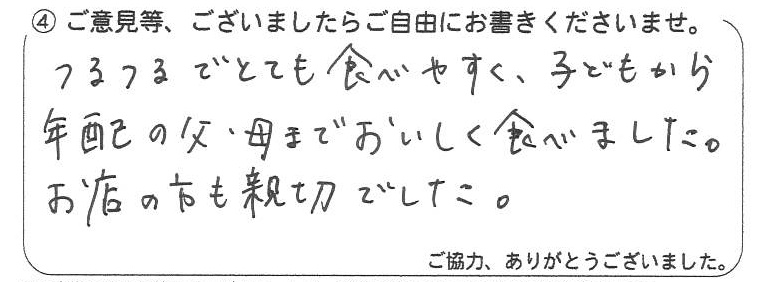 ④ ご意見等、ございましたらご自由にお書きくださいませ。
つるつるでとても食べやすく、子どもから
年配の父・母までおいしく食べました。
お店の方も親切でした。
ご協力、ありがとうございました。